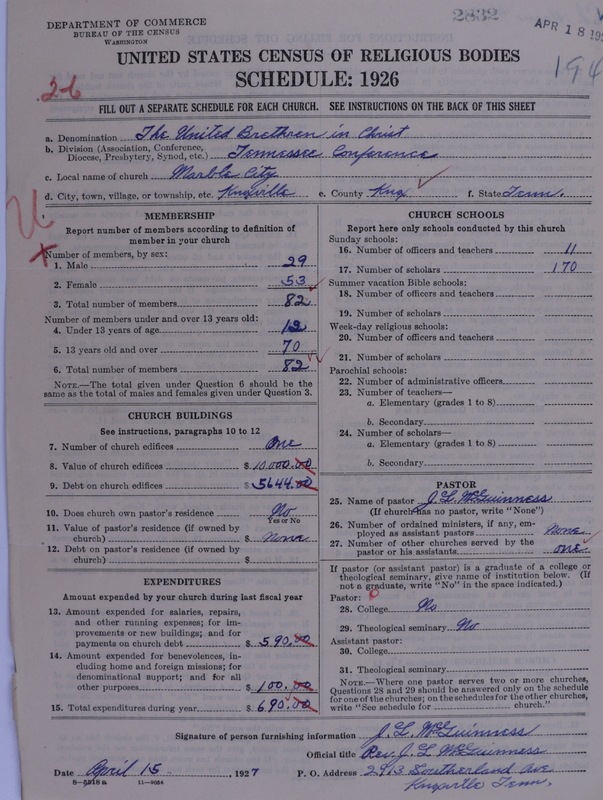 DEPARTMENT OF COMMERCE
BUREAU OF THE CENSUS
WASHINGTON
2832
APR 18 192
194
UNITED STATES CENSUS OF RELIGIOUS BODIES
SCHEDULE: 1926
26
FILL OUT A SEPARATE SCHEDULE FOR EACH CHURCH. SEE INSTRUCTIONS ON THE BACK OF THIS SHEET
a. Denomination The United Brethren in Christ
b. Division (Association, Conference, Diocese, Presbytery, Synod, etc.) Tennessee Conference
c. Local name of church Marble City
d. City, town, village, or township, etc. Knoxville e. County Knox f. State Tenn.
MEMBERSHIP
Report number of members according to definition of
member in your church
Number of members, by sex:
1. Male 29
2. Female 53
3. Total number of members 82
Number of members under and over 13 years old:
4. Under 13 years of age 12
5. 13 years old and over 70
6. Total number of members 82
NOTE.—The total given under Question 6 should be
same as the total of males and females given under Question 3.
CHURCH BUILDINGS
See instructions, paragraphs 10 to 12
7. Number of church edifices One
8. Value of church edifices $ 10,000.00
9. Debt on church edifices $ 5644.00
10. Does church own pastor's residence No
Yes or No
11. Value of pastor's residence (if owned by
church) $ None
12. Debt on pastor's residence (if owned by
church) $
EXPENDITURES
Amount expended by your church during last fiscal year
13. Amount expended for salaries, repairs,
and other running expenses; for im-
provements or new buildings; and for
payments on church debt $ 590.00
14. Amount expended for benevolences, in-
cluding home and foreign missions; for
denominational support; and for all
other purposes $ 100.00
15. Total expenditures during year $ 690.00
CHURCH SCHOOLS
Report here only schools conducted by this church
Sunday schools:
16. Number of officers and teachers 11
17. Number of scholars 170
Summer vacation Bible schools:
18. Number of officers and teachers
19. Number of scholars
Week-day religious schools:
20. Number of officers and teachers
21. Number of scholars
Parochial schools:
22. Number of administrative officers
23. Number of teachers—
a. Elementary (grades 1 to 8)
b. Secondary
24. Number of scholars—
a. Elementary (grades 1 to 8)
b. Secondary
PASTOR
25. Name of pastor J. L. McGuinness
(If church has no pastor, write "None")
26. Number of ordained ministers, if any, em-
ployed as assistant pastors None
27. Number of other churches served by the
pastor or his assistants one
If pastor (or assistant pastor) is a graduate of a college or
theological seminary, give name of institution below. (If
not a graduate, write "No" in the space indicated.)
Pastor:
28. College No
29. Theological seminary No
Assistant pastor:
30. College
31. Theological seminary
NOTE.—Where one pastor serves two or more churches,
Questions 28 and 29 should be answered only on the schedule
for one of the churches; on the schedules for the other churches,
write "See schedule for ________ church."
Signature of person furnishing information J. L. McGuinness
Official title Rev. J. L. McGuinness
Date April 15 1927 P. O. Address 2913 Southerland Ave
Knoxville Tenn.
8-5318a 11-9054